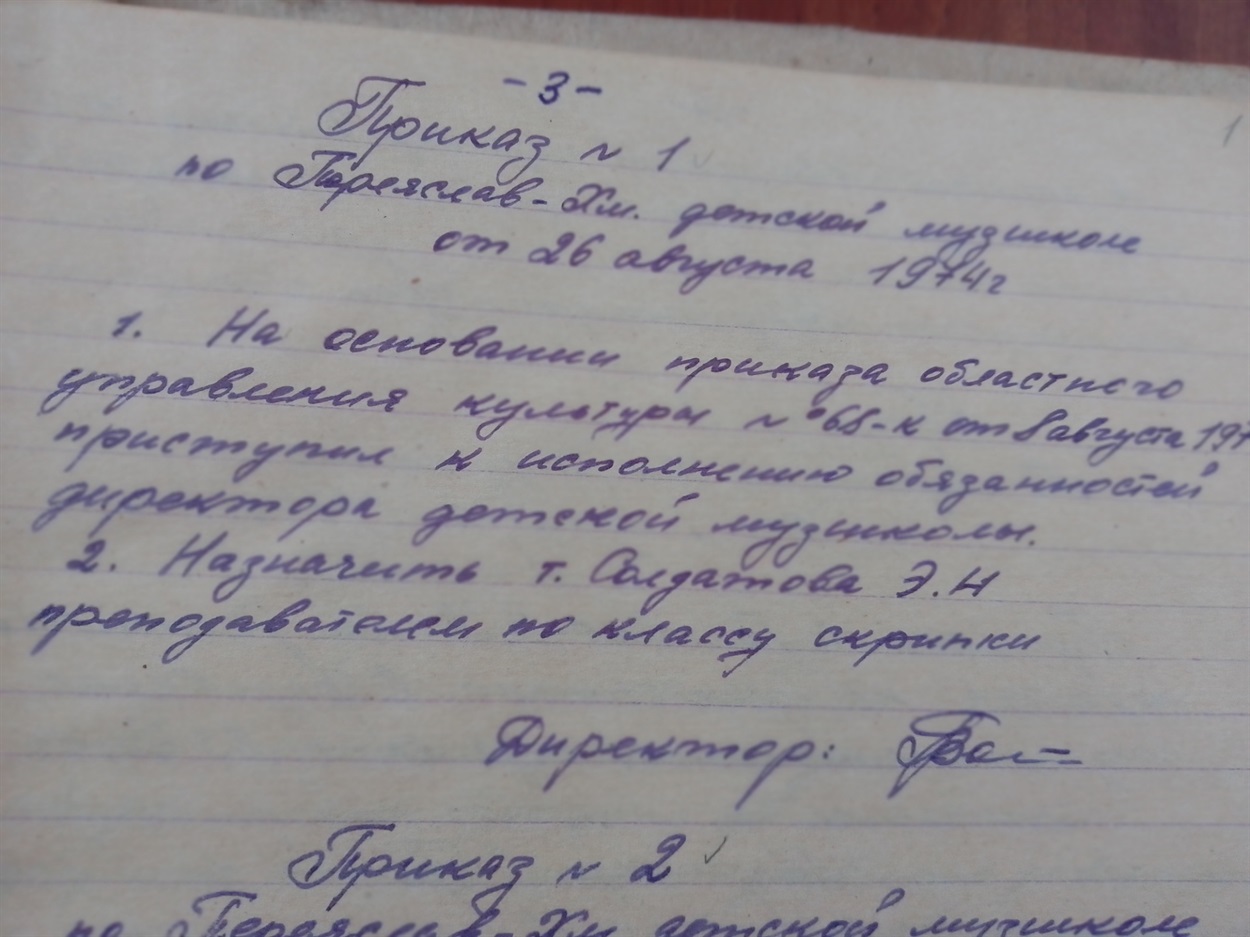 - 3 -
1
Приказ № 1
по Переяслав-Хм. детской музшколе
от 26 августа 1974г
1. На основании приказа областного
управления культуры № 68-к от 8 августа 197
приступил к исполнению обязанностей
директора детской музшколы.
2. Назначить т. Солдатова Э.Н
преподавателем по классу скрипки
Директор:
Приказ № 2
по Переяслав-Хм детской музшколе